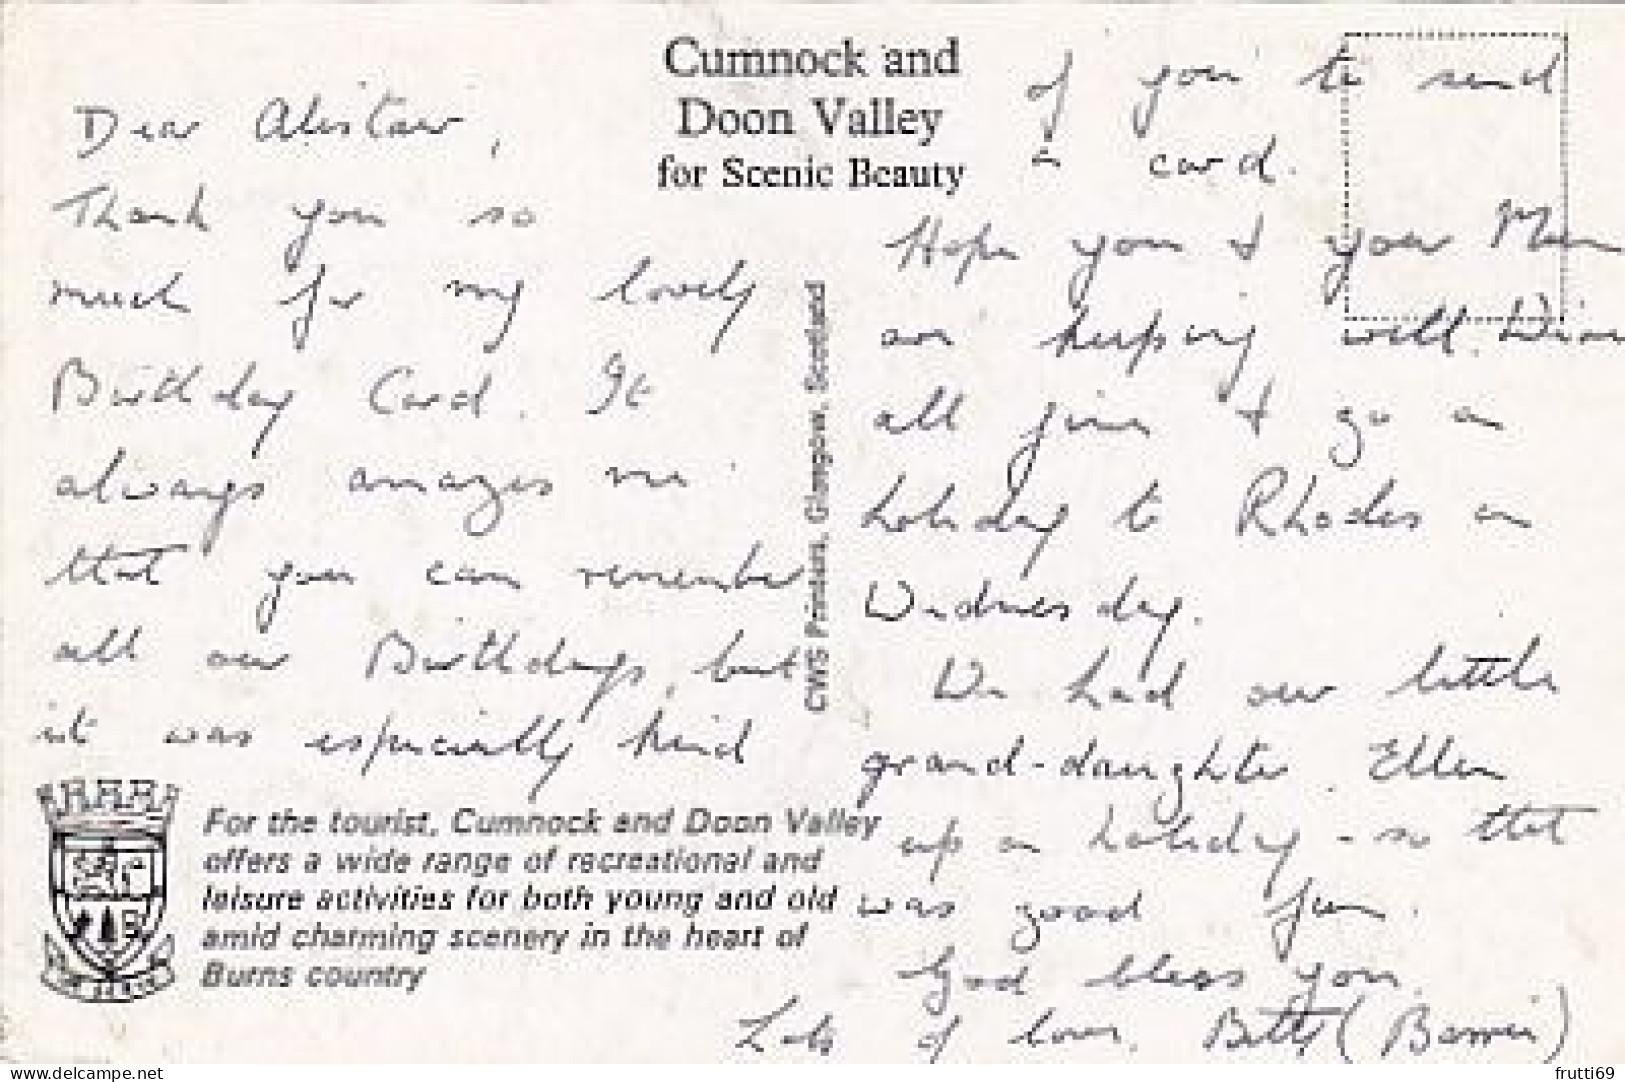 Cumnock and
Doon Valley
for Scenic Beauty
Dear Alistair,
Thank you so
much for my lovely
Birthday Card. It
always amazes me
that you can remember
all our Birthdays, but
it was especially kind
of you to send
a card.
Hope you & your Mum
are keeping well.
all fine & go on
holiday to Rhodes on
Wednesday.
We had our little
grand-daughter Ellen
up on holiday - so that
was good fun.
God bless you.
Lots of love, Betty (
CWS Printers, Glasgow, Scotland
For the tourist, Cumnock and Doon Valley
offers a wide range of recreational and
leisure activities for both young and old
amid charming scenery in the heart of
Burns country
delcampe.net
frutti69